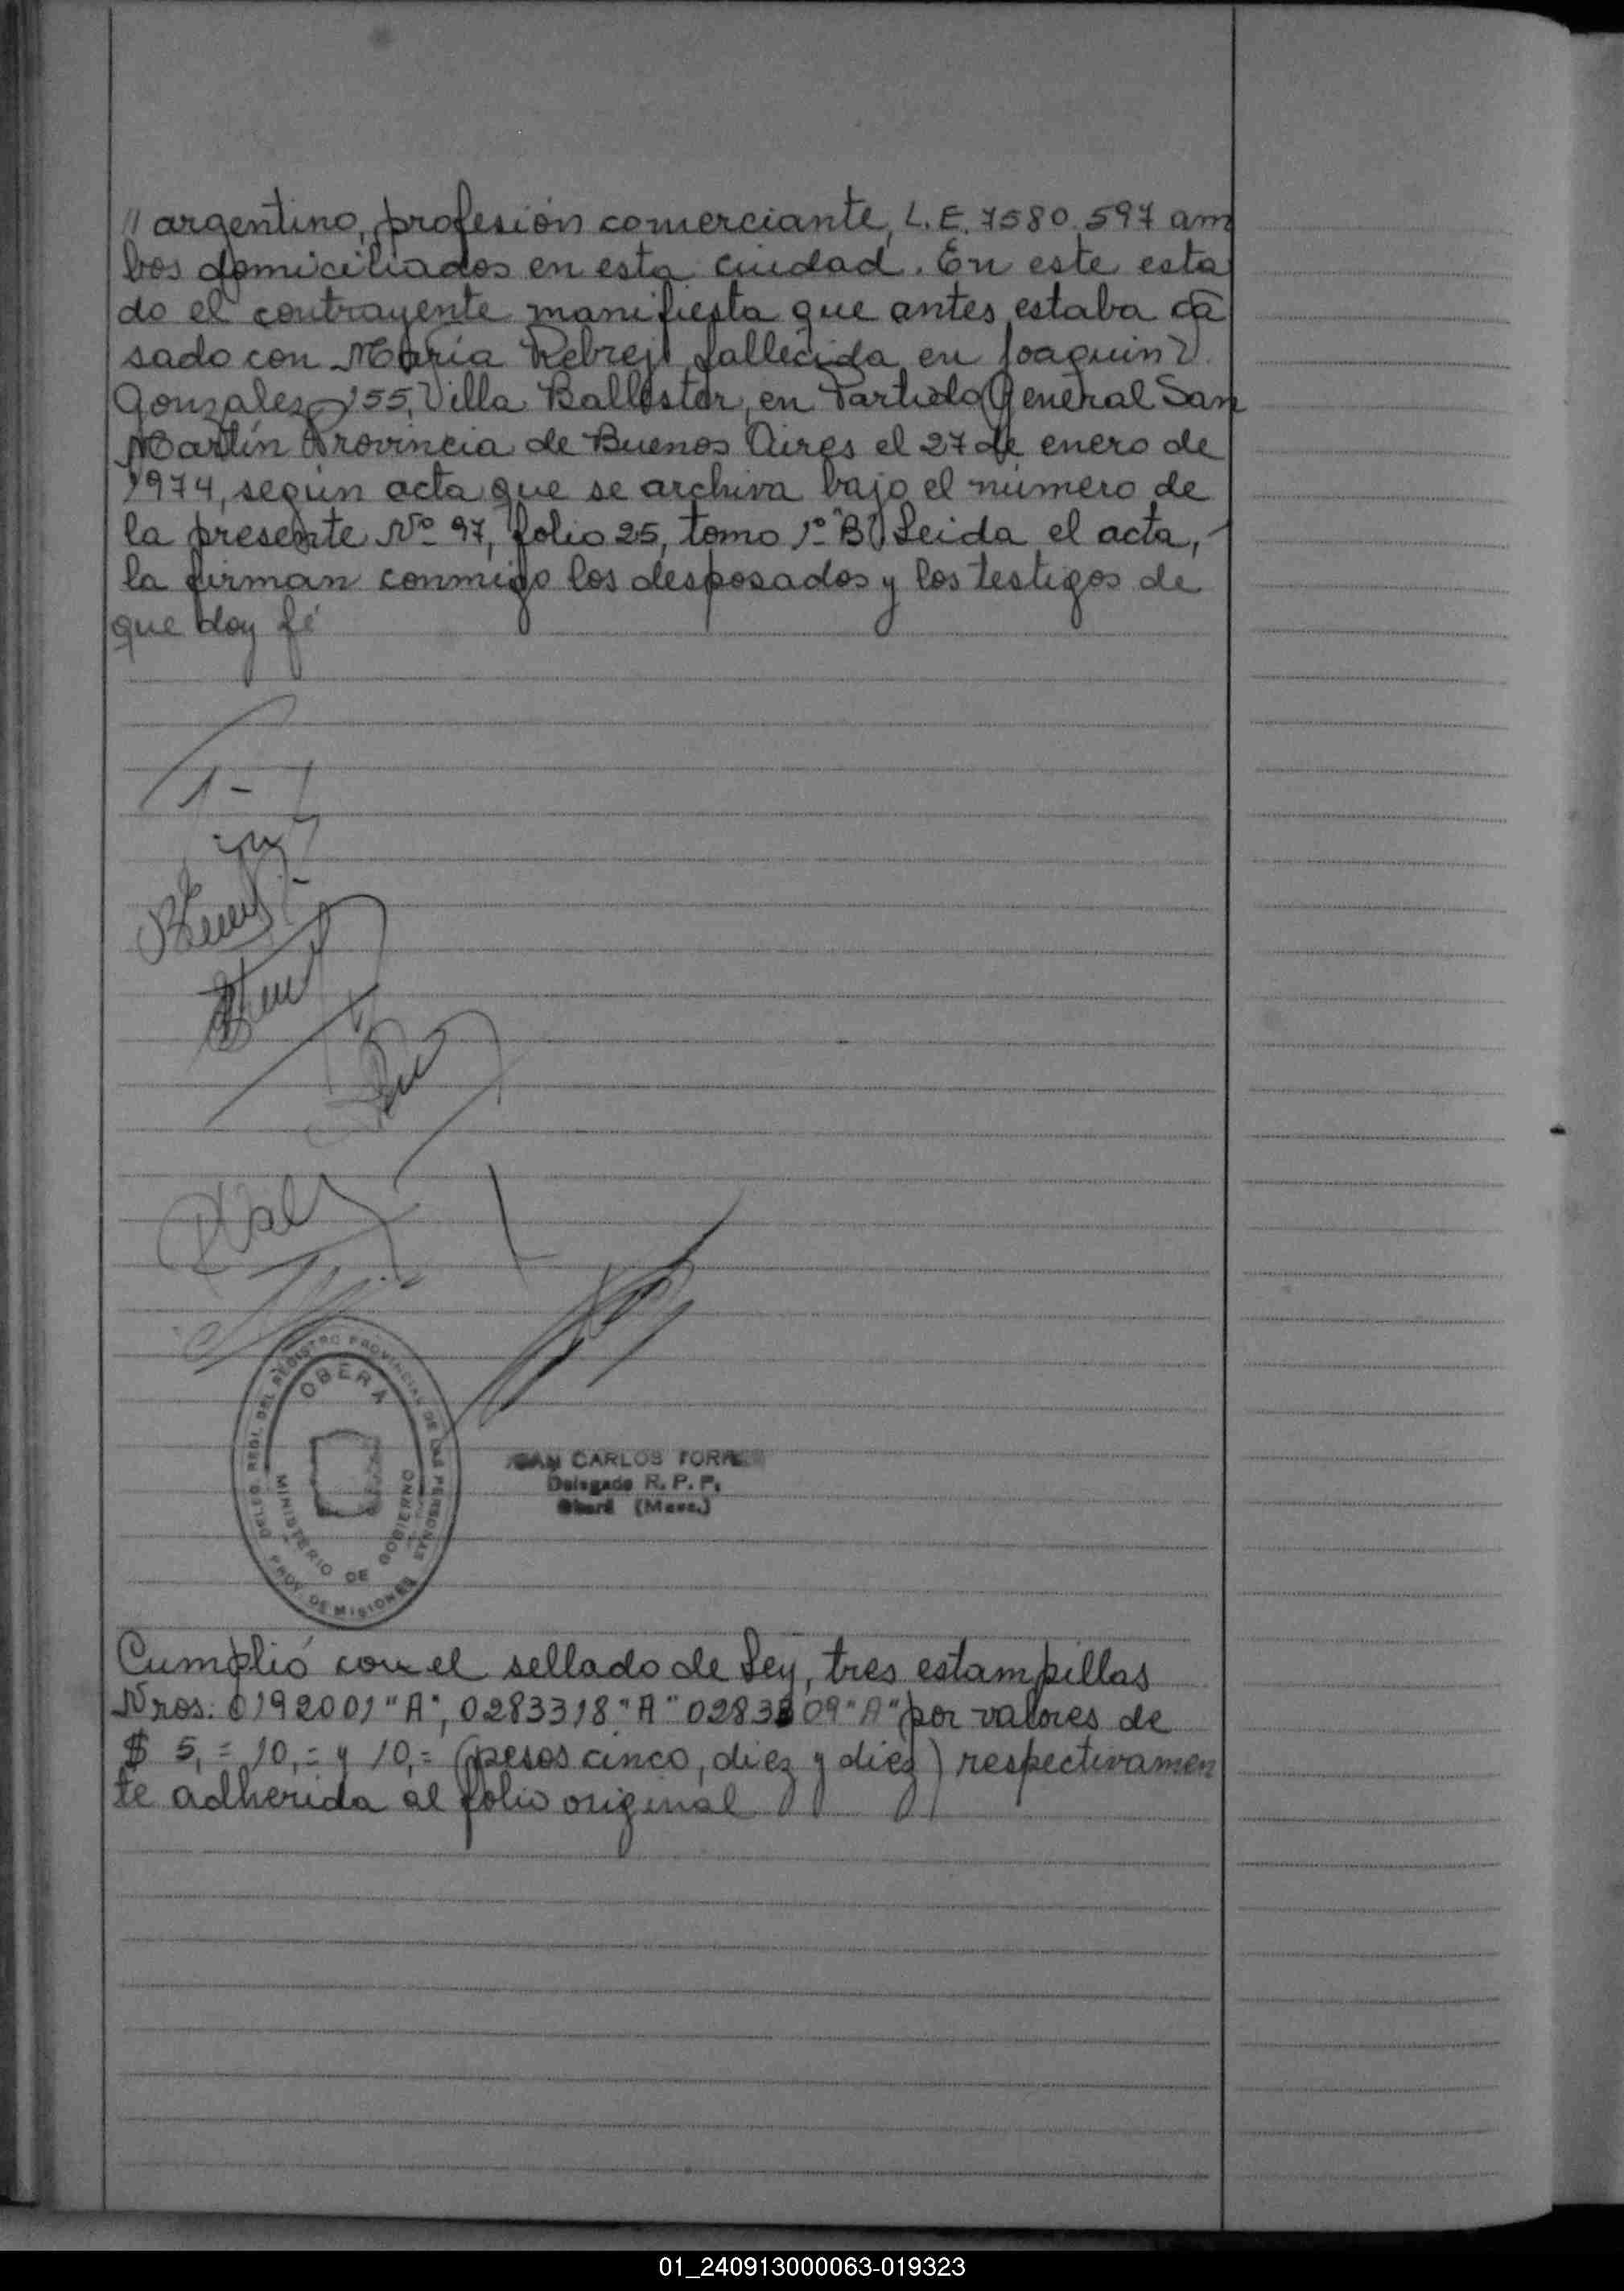 // argentino, profesión comerciante, L.E. 7580.597 am
bos domiciliados en esta ciudad. En este esta
do el contrayente manifiesta que antes estaba ca
sado con María fallecida en Joaquin V.
Gonzales 155, Villa Ballester, en Partido General San
Martín Provincia de Buenos Aires el 27 de enero de
1974, según acta que se archiva bajo el número de
la presente Nº 97, folio 25, tomo 1º "B" Leida el acta, -
la firman conmigo los desposados y los testigos de
que doy fé
DELEG. REGI. DEL REGISTRO PROVINCIAL DE LAS PERSONAS
OBERA
MINISTERIO DE GOBIERNO
PROV. DE MISIONES
CARLOS TORRES
Delegado R. P. P.
Oberá (Mnes.)
Cumplió con el sellado de Ley, tres estampillas
Nros: 0192001 "A", 0283318 "A" 0283309 "A" por valores de
$ 5,= 10,= y 10,= (pesos cinco, diez y diez) respectivamen
te adherida al folio original
01_240913000063-019323